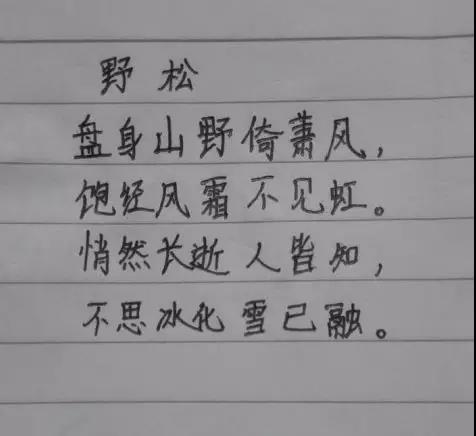 野松
盘身山野倚萧风，
饱经风霜不见虹。
悄然长逝人皆知，
不思冰化雪已融。